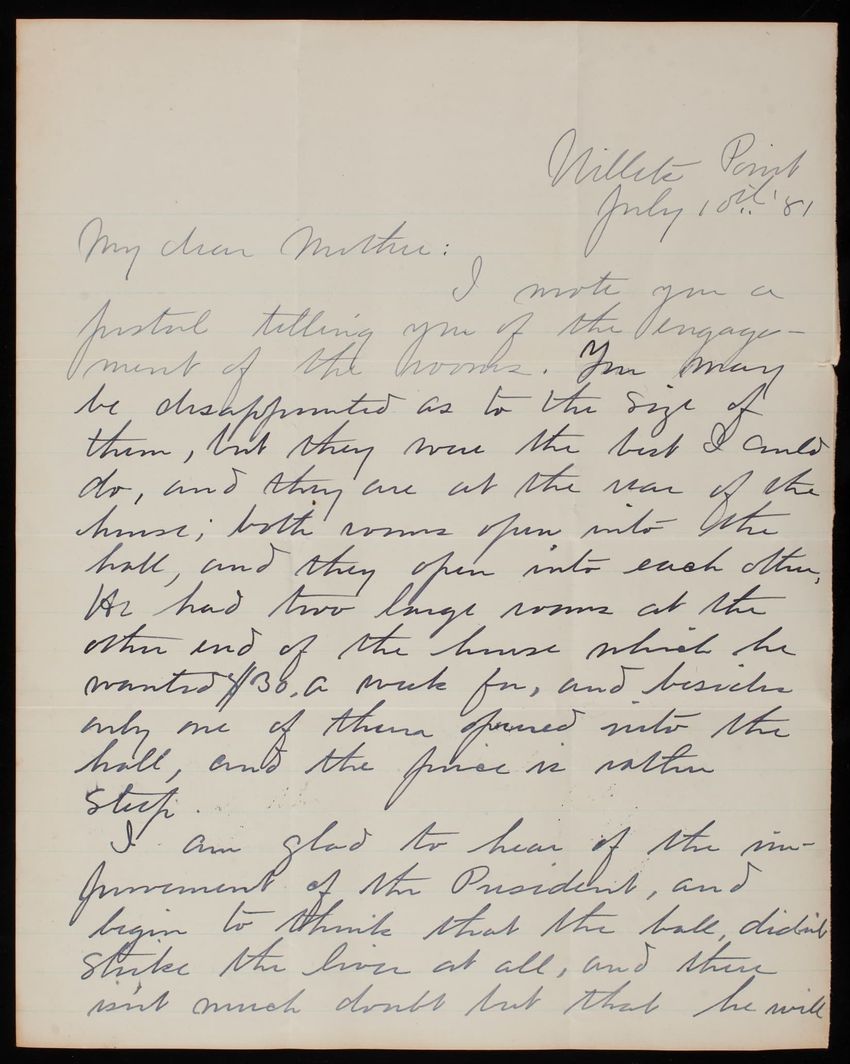 Willets Point
July 10th '81
My dear Mother:
I wrote you a
postal telling you of the engage-
ment of the rooms. You may
be disappointed as to the size of
them, but they were the best I could
do, and they are at the rear of the
house; both rooms open into the
hall, and they open into each other.
He had two large rooms at the
other end of the house which he
wanted $30. a week for, and besides
only one of them opened into the
hall, and the price is rather
steep.
I am glad to hear of the im-
provement of the President, and
begin to think that the ball, didn't
strike the liver at all, and there
isn't much doubt but that he will